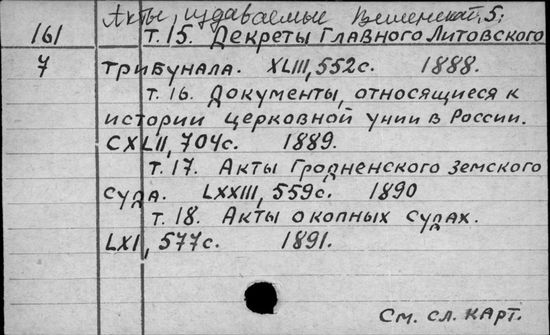 Акты, издаваемые Виленской, 5;
161 т. 15. Декреты Главного Литовского
7 трибунала. XLIII, 552с. 1888.
т. 16. Документы, относящиеся к
истории церковной унии в России.
CXLII, 704с. 1889.
т. 17. Акты Гродненского земского
суда. LXXIII, 559с. 1890
т. 18. Акты о копных судах.
LXI, 577с. 1891.
См. сл. карт.